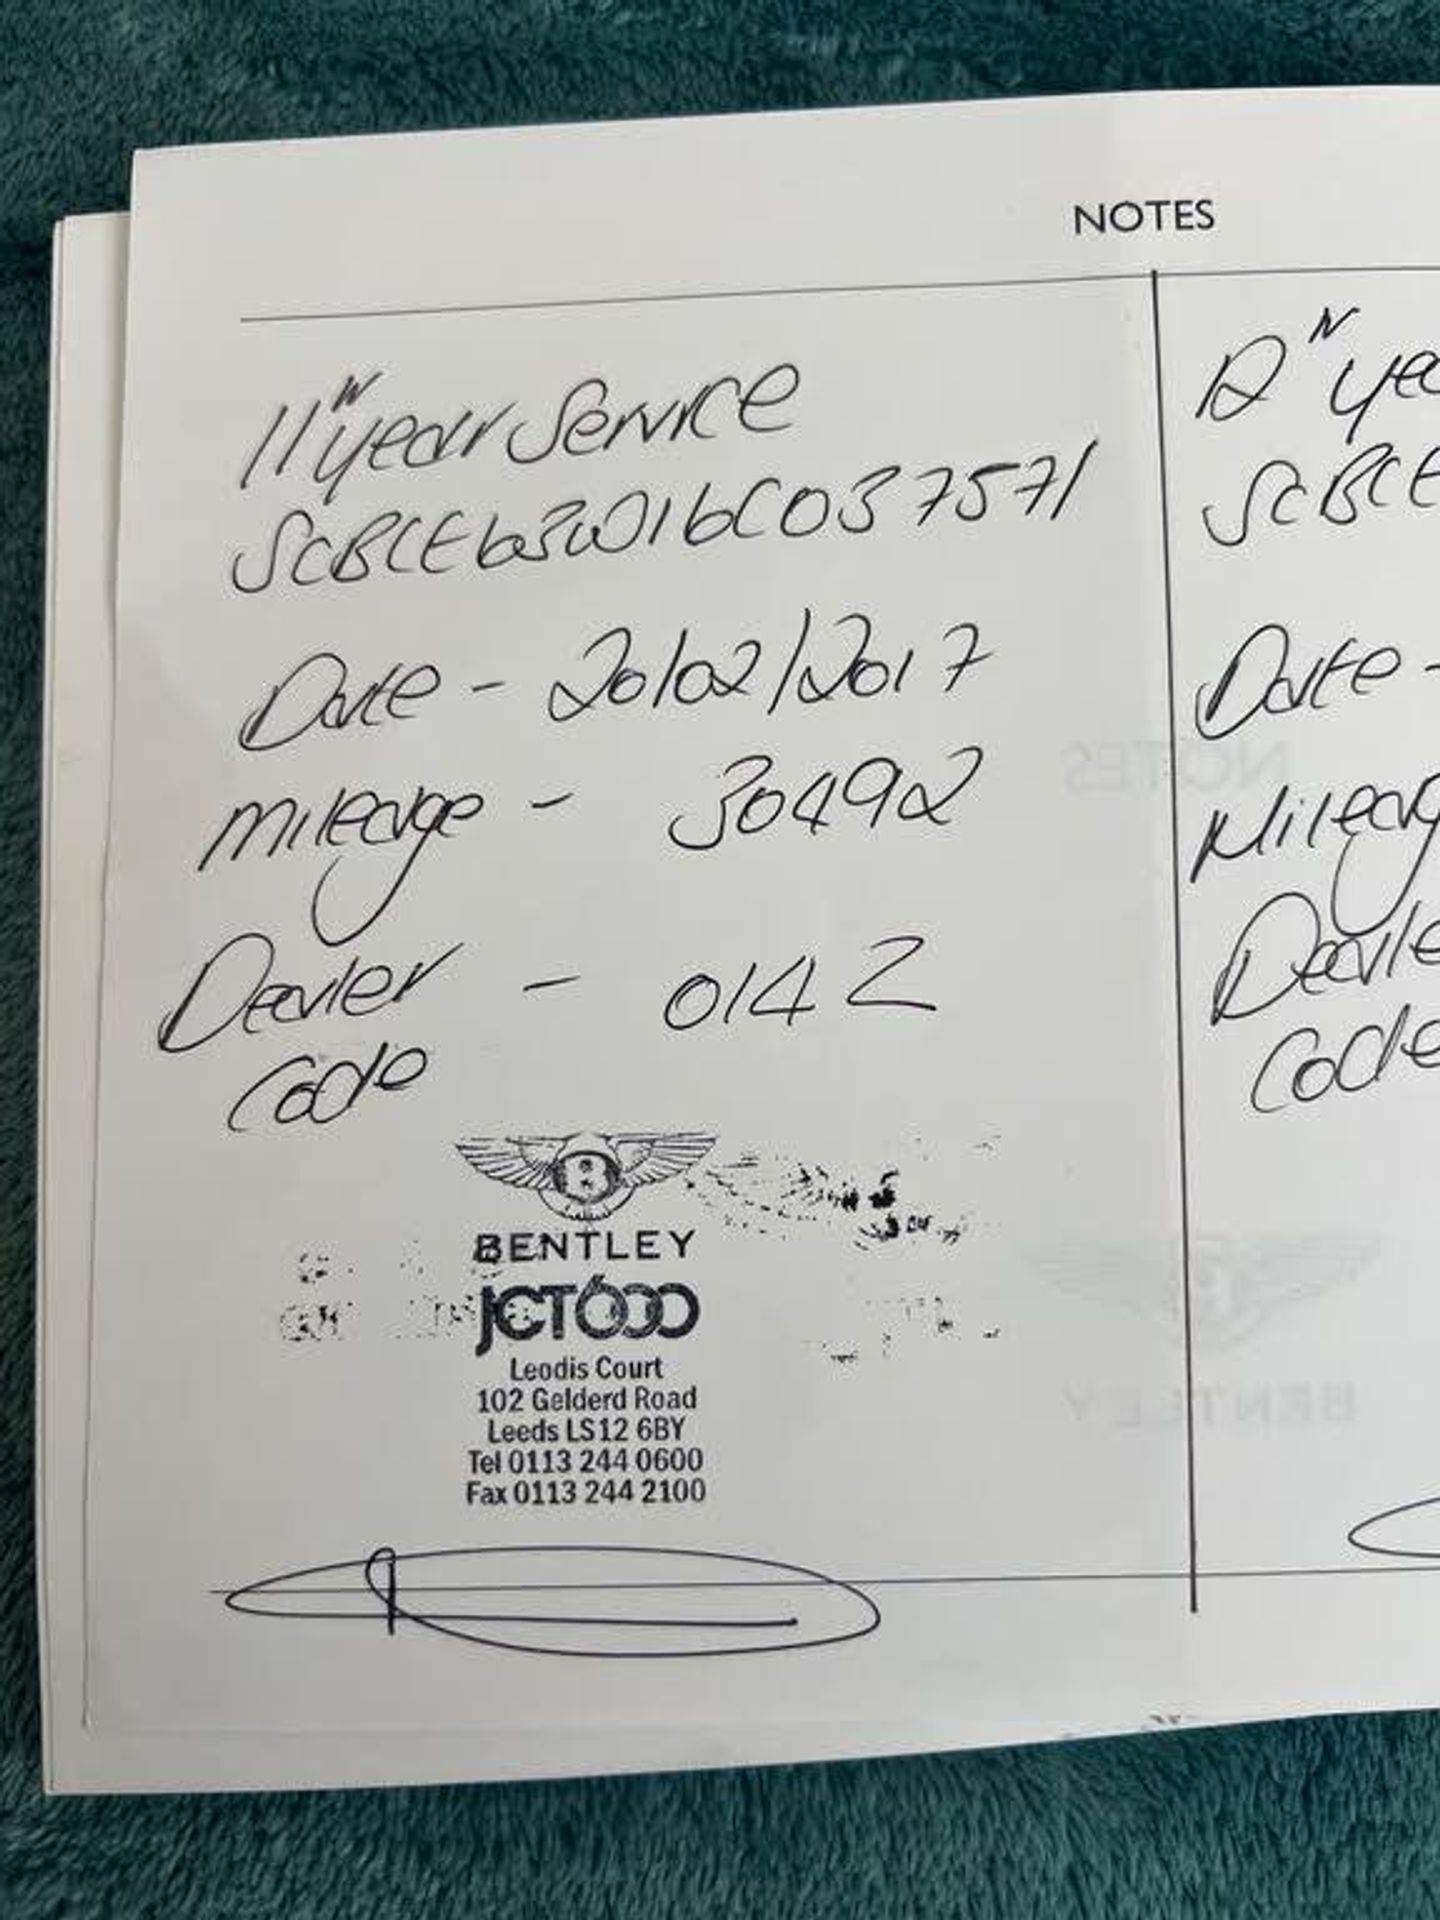 NOTES
11th year Service
SCBCE63W16C037571
Date - 20/02/2017
Mileage - 30492
Dealer - 0142
Code
BENTLEY
JCT600
Leodis Court
102 Gelderd Road
Leeds LS12 6BY
Tel 0113 244 0600
Fax 0113 244 2100
12th yea
SCBCE
Date -
Mileag
Deale
Code